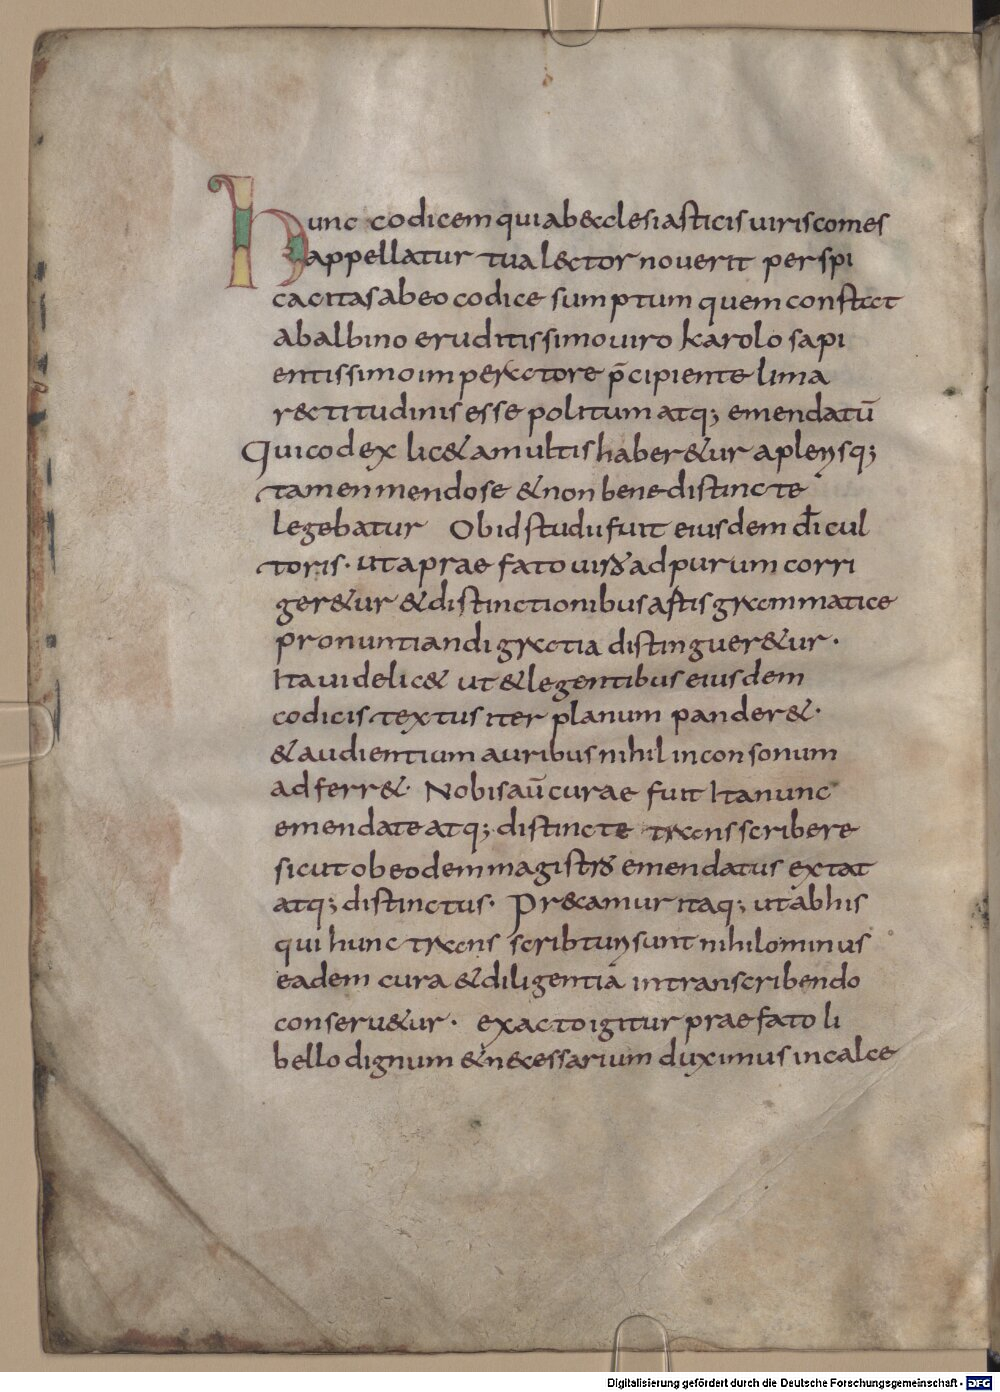 Hunc codicem qui ab ecclesiasticis uiris comes
appellatur tua lector nouerit perspi
cacitas ab eo codice sumptum quem constat
ab albino eruditissimo uiro karolo sapi
entissimo imperatore p̄cipiente lima
r&titudinis esse politum atq; emendatū
Qui codex lic& a multis haber&ur a plerisq;
tamen mendose & non bene distincte
legebatur Ob id studii fuit eiusdem dī cul
toris· ut a praefato uiro ad purum corri
ger&ur & distinctionibus artis grammatice
pronuntiandi gratia distinguer&ur·
Ita uidelic& ut & legentibus eiusdem
codicis textus iter planum pander&·
& audientium auribus nihil inconsonum
adferr&· Nobis aū curae fuit Ita nunc
emendate atq; distincte transscribere
sicut ob eodem magistro emendatus extat
atq; distinctus· Pr&amur itaq; ut ab his
qui hunc transscribturi sunt nihilominus
eadem cura & diligentia in transcribendo
conseru&ur· exacto igitur praefato li
bello dignum & necessarium duximus in calce
Digitalisierung gefördert durch die Deutsche Forschungsgemeinschaft - DFG